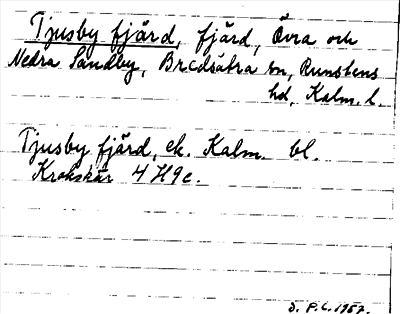 Tjusby fjärd, fjärd, Övra och
Nedra Sandby, Bredsätra sn, Runstens
hd, Kalm. l.
Tjusby fjärd, ek. Kalm. bl.
Krokskär 4H9c.
S. P. C. 1957.